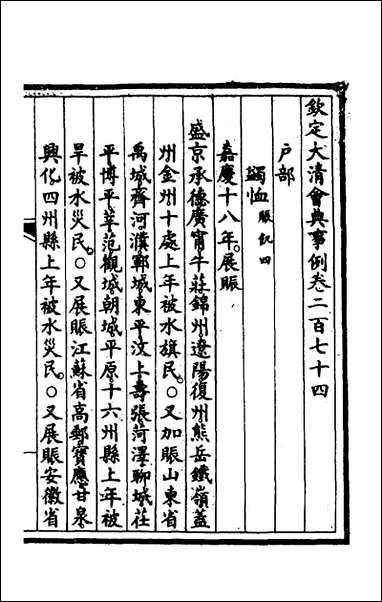 欽定大清會典事例卷二百七十四
戶部
蠲恤賑飢四
嘉慶十八年。展賑
盛京承德廣甯牛莊錦州遼陽復州熊岳鐵嶺蓋
州金州十處上年被水旗民。○又加賑山東省
禹城齊河濮鄆城東平汶上壽張菏澤聊城茌
平博平莘范觀城朝城平原十六州縣上年被
旱被水災民。○又展賑江蘇省高郵寶應甘泉
興化四州縣上年被水災民。○又展賑安徽省